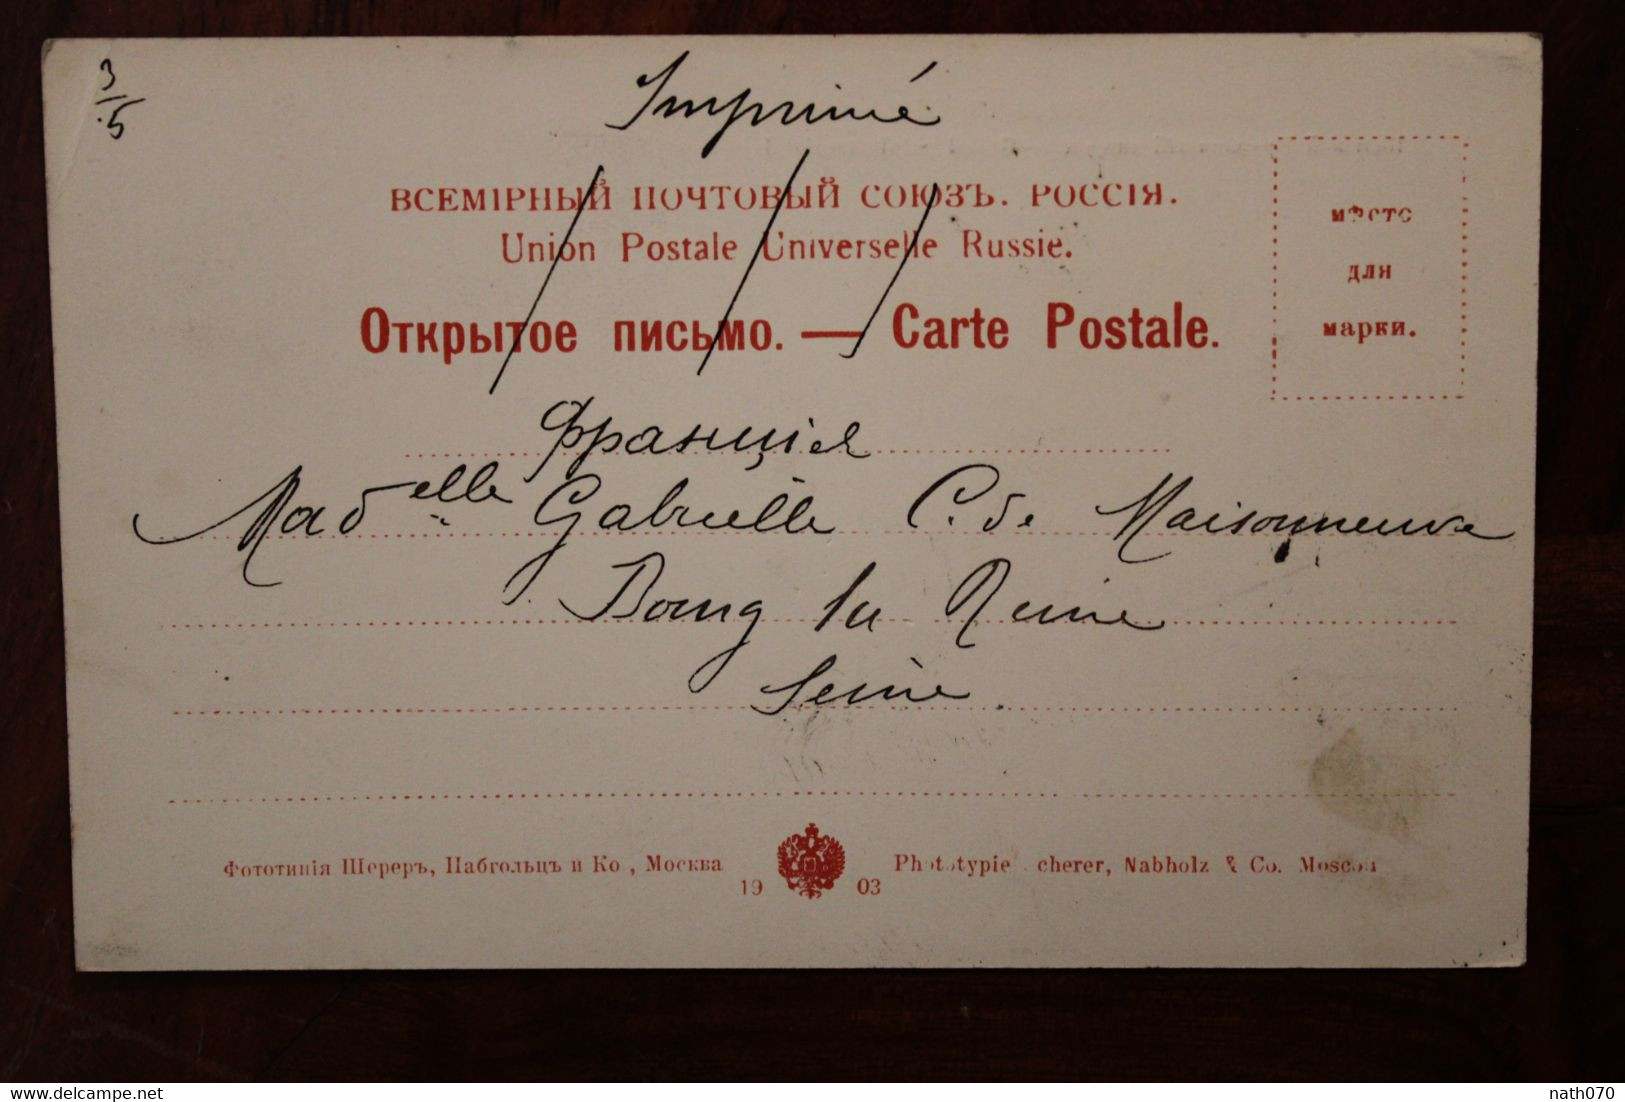 3/5
Imprimé
ВСЕМІРНЫЙ ПОЧТОВЫЙ СОЮЗЪ. РОССІЯ.
Union Postale Universelle Russie.
Открытое письмо. — Carte Postale.
мѣсто
для
марки.
Франція
Mad elle Gabrielle C. de Maisonneuve
Bourg la Reine
Seine
Фототипія Шереръ, Набгольцъ и Ко, Москва
Phototypie Scherer, Nabholz & Co. Moscou
19 03
1600 x 1065 px
nath070